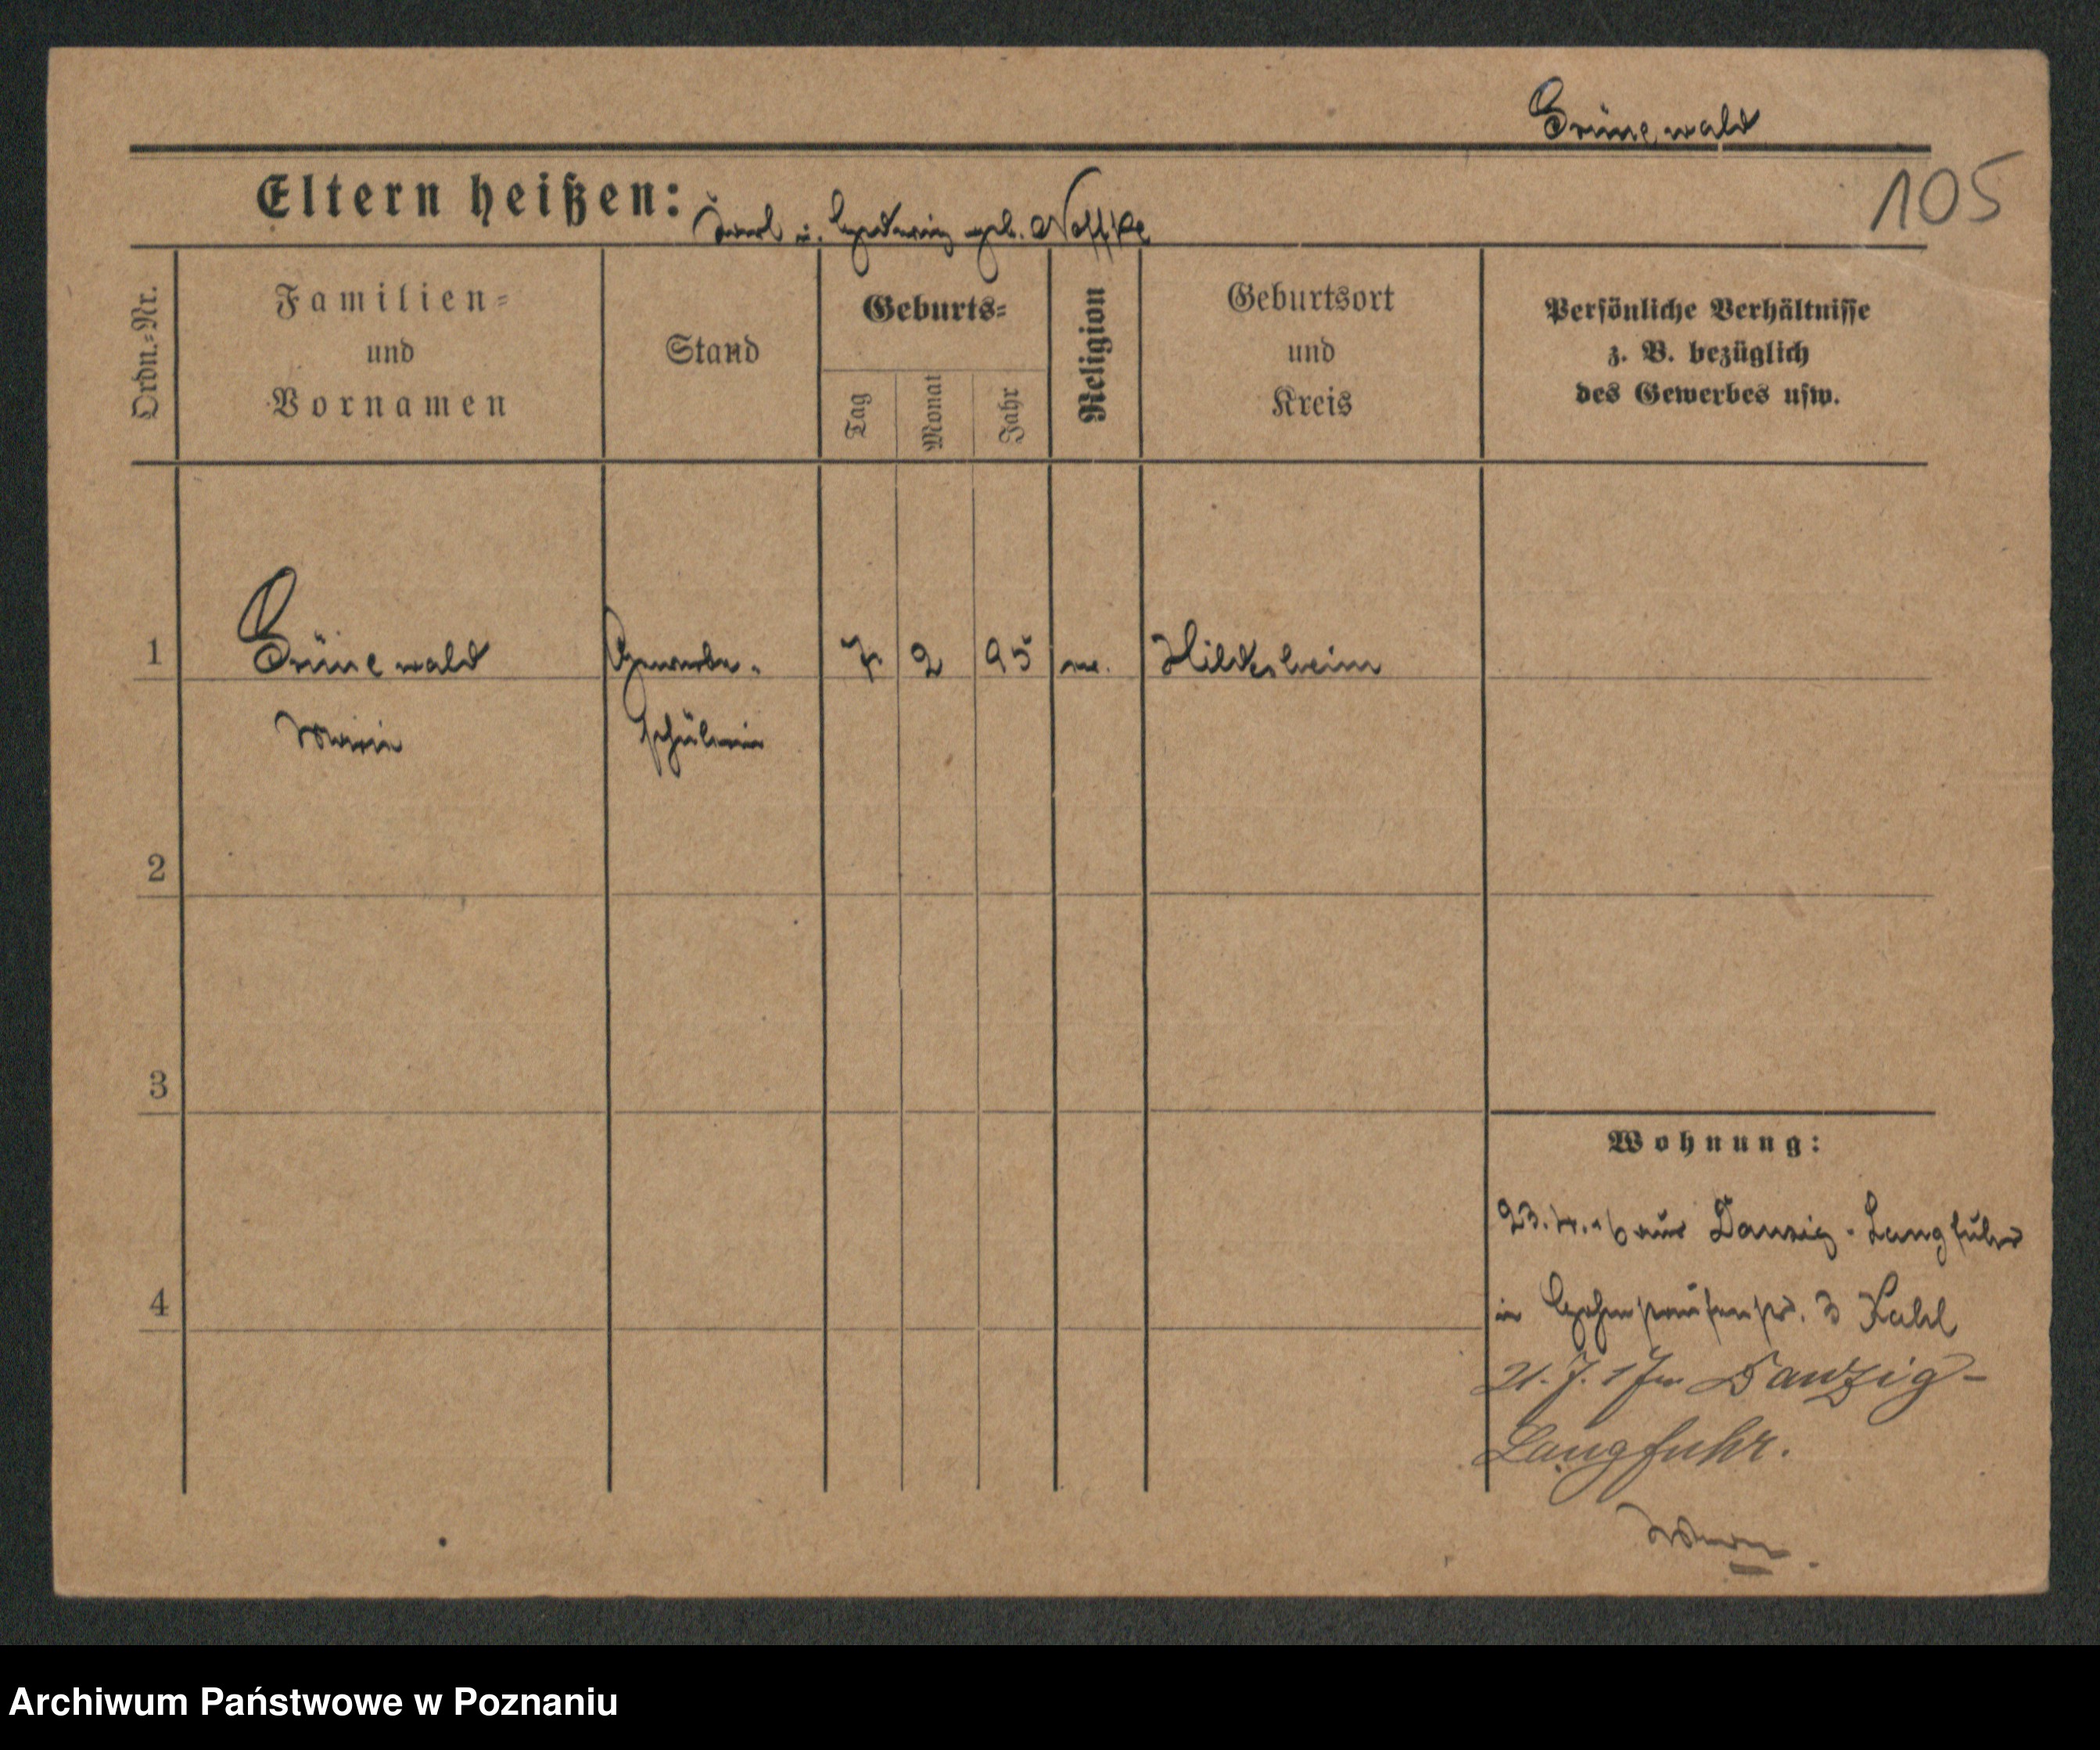 Grünewald
105
Eltern heißen: Karl u. Hedwig geb. Noffke
Ordn.-Nr.
Familien-
und
Vornamen
Stand
Geburts-
Tag
Monat
Jahr
Religion
Geburtsort
und
Kreis
Persönliche Verhältnisse
z. B. bezüglich
des Gewerbes usw.
1
Grünewald
Gewerbe-
7.
2
95
ev.
Hildesheim
Marie
schülerin
2
3
4
Wohnung:
23.4.16 aus Danzig-Langfuhr
in Hohenstaufenstr. 3 Kahl
21.7.17 Danzig-
Langfuhr.
Archiwum Państwowe w Poznaniu